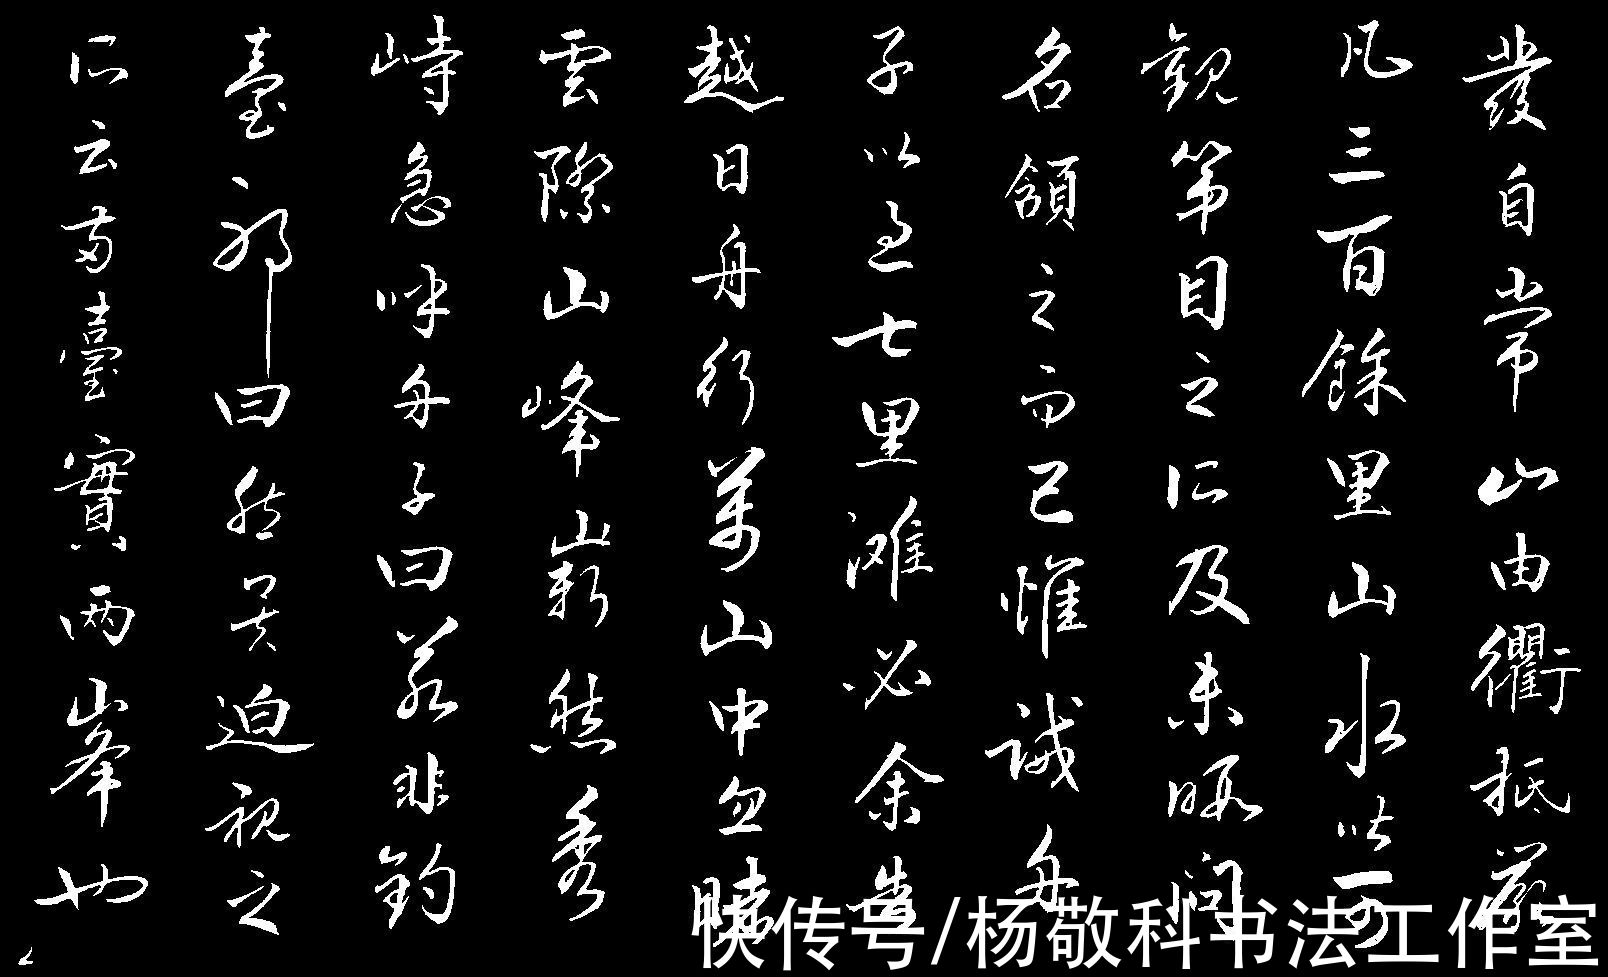 發自常山由衢抵嚴
凡三百餘里山水皆可
觀第目之所及未暇問
名頷之而已惟誡舟
子以過七里灘必余告
越日舟行萬山中忽睹
雲際山峰嶄然秀
峙急呼舟子曰若非釣
臺邪曰然矣迫視之
所云兩臺實兩山峰也
快传号/杨敬科书法工作室